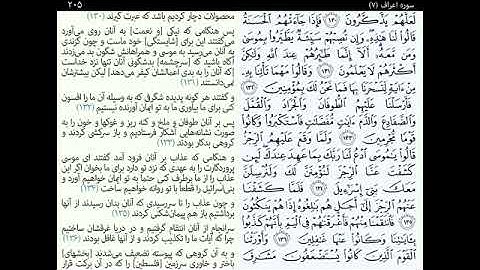 سوره اعراف (۷)
۲۰۵
لَعَلَّهُمْ يَذَّكَّرُونَ ﴿١٣٠﴾ فَإِذَا جَآءَتْهُمُ ٱلْحَسَنَةُ
قَالُوا۟ لَنَا هَٰذِهِۦ وَإِن تُصِبْهُمْ سَيِّئَةٌ يَطَّيَّرُوا۟ بِمُوسَىٰ
وَمَن مَّعَهُۥٓ أَلَآ إِنَّمَا طَٰٓئِرُهُمْ عِندَ ٱللَّهِ وَلَٰكِنَّ
أَكْثَرَهُمْ لَا يَعْلَمُونَ ﴿١٣١﴾ وَقَالُوا۟ مَهْمَا تَأْتِنَا بِهِۦ
مِنْ ءَايَةٍ لِّتَسْحَرَنَا بِهَا فَمَا نَحْنُ لَكَ بِمُؤْمِنِينَ ﴿١٣٢﴾
فَأَرْسَلْنَا عَلَيْهِمُ ٱلطُّوفَانَ وَٱلْجَرَادَ وَٱلْقُمَّلَ
وَٱلضَّفَادِعَ وَٱلدَّمَ ءَايَٰتٍ مُّفَصَّلَٰتٍ فَٱسْتَكْبَرُوا۟ وَكَانُوا۟
قَوْمًا مُّجْرِمِينَ ﴿١٣٣﴾ وَلَمَّا وَقَعَ عَلَيْهِمُ ٱلرِّجْزُ
قَالُوا۟ يَٰمُوسَى ٱدْعُ لَنَا رَبَّكَ بِمَا عَهِدَ عِندَكَ لَئِن
كَشَفْتَ عَنَّا ٱلرِّجْزَ لَنُؤْمِنَنَّ لَكَ وَلَنُرْسِلَنَّ
مَعَكَ بَنِىٓ إِسْرَٰٓءِيلَ ﴿١٣٤﴾ فَلَمَّا كَشَفْنَا
عَنْهُمُ ٱلرِّجْزَ إِلَىٰٓ أَجَلٍ هُم بَٰلِغُوهُ إِذَا هُمْ يَنكُثُونَ
﴿١٣٥﴾ فَٱنتَقَمْنَا مِنْهُمْ فَأَغْرَقْنَٰهُمْ فِى ٱلْيَمِّ بِأَنَّهُمْ كَذَّبُوا۟
بِـَٔايَٰتِنَا وَكَانُوا۟ عَنْهَا غَٰفِلِينَ ﴿١٣٦﴾ وَأَوْرَثْنَا
ٱلْقَوْمَ ٱلَّذِينَ كَانُوا۟ يُسْتَضْعَفُونَ مَشَٰرِقَ
محصولات دچار کردیم باشد که عبرت گیرند (۱۳۰)
پس هنگامی که نیکی [و نعمت] به آنان روی می‌آورد
می‌گفتند این برای [شایستگی] خود ماست و چون گزندی
به آنان می‌رسید به موسی و همراهانش شگون بد می‌زدند
آگاه باشید که [سرچشمه] بدشگونی آنان تنها نزد خداست
که آنان را به بدی اعمالشان کیفر می‌دهد] لیکن بیشترشان
نمی‌دانستند (۱۳۱)
و گفتند هر گونه پدیده شگرفی که به وسیله آن ما را افسون
کنی برای ما بیاوری ما به تو ایمان آورنده نیستیم (۱۳۲)
پس بر آنان طوفان و ملخ و کنه ریز و غوکها و خون را به
صورت نشانه‌هایی آشکار فرستادیم و باز سرکشی کردند و
گروهی بدکار بودند (۱۳۳)
و هنگامی که عذاب بر آنان فرود آمد گفتند ای موسی
پروردگارت را به عهدی که نزد تو دارد برای ما بخوان اگر این
عذاب را از ما برطرف کنی حتما به تو ایمان خواهیم آورد و
بنی‌اسرائیل را قطعا با تو روانه خواهیم ساخت (۱۳۴)
و چون عذاب را تا سررسیدی که آنان بدان رسیدند از آنها
برداشتیم باز هم پیمان‌شکنی کردند (۱۳۵)
سرانجام از آنان انتقام گرفتیم و در دریا غرقشان ساختیم
چرا که آیات ما را تکذیب کردند و از آنها غافل بودند (۱۳۶)
و به آن گروهی که پیوسته تضعیف می‌شدند [بخشهای]
باختر و خاوری سرزمین [فلسطین] را که در آن برکت قرار